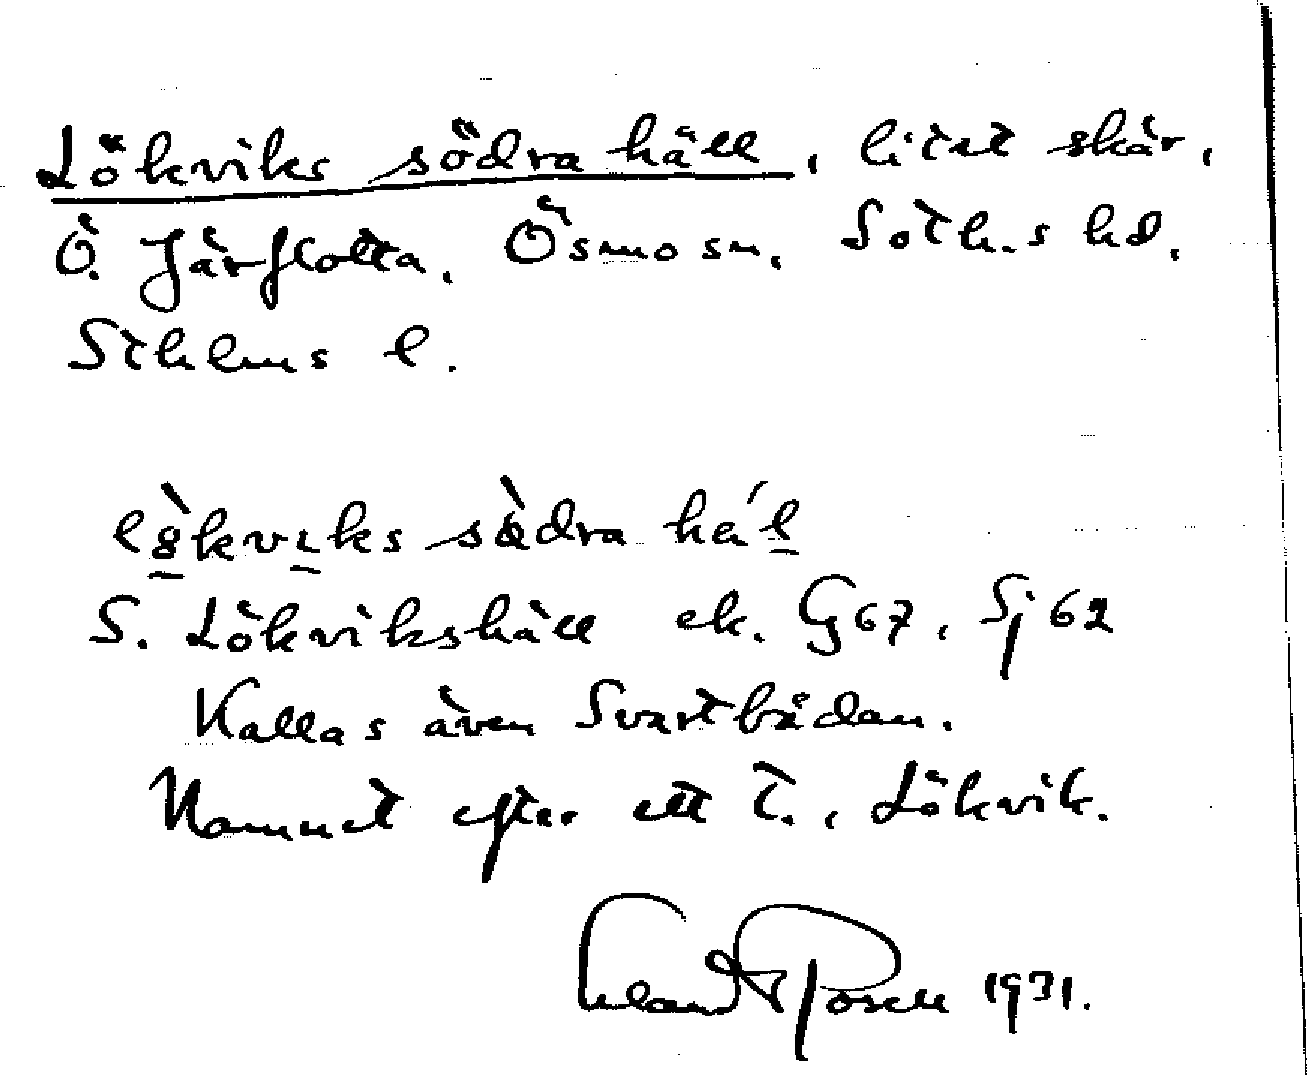 Lökviks södra häll, litet skär,
Ö. Järflotta, Ösmo sn, Soth.s hd,
Sthlms l.
S. Lökvikshäll ek. G 67, Sj 62
Kallas även Svartbådan.
Namnet efter ett t., Lökvik.
1931.